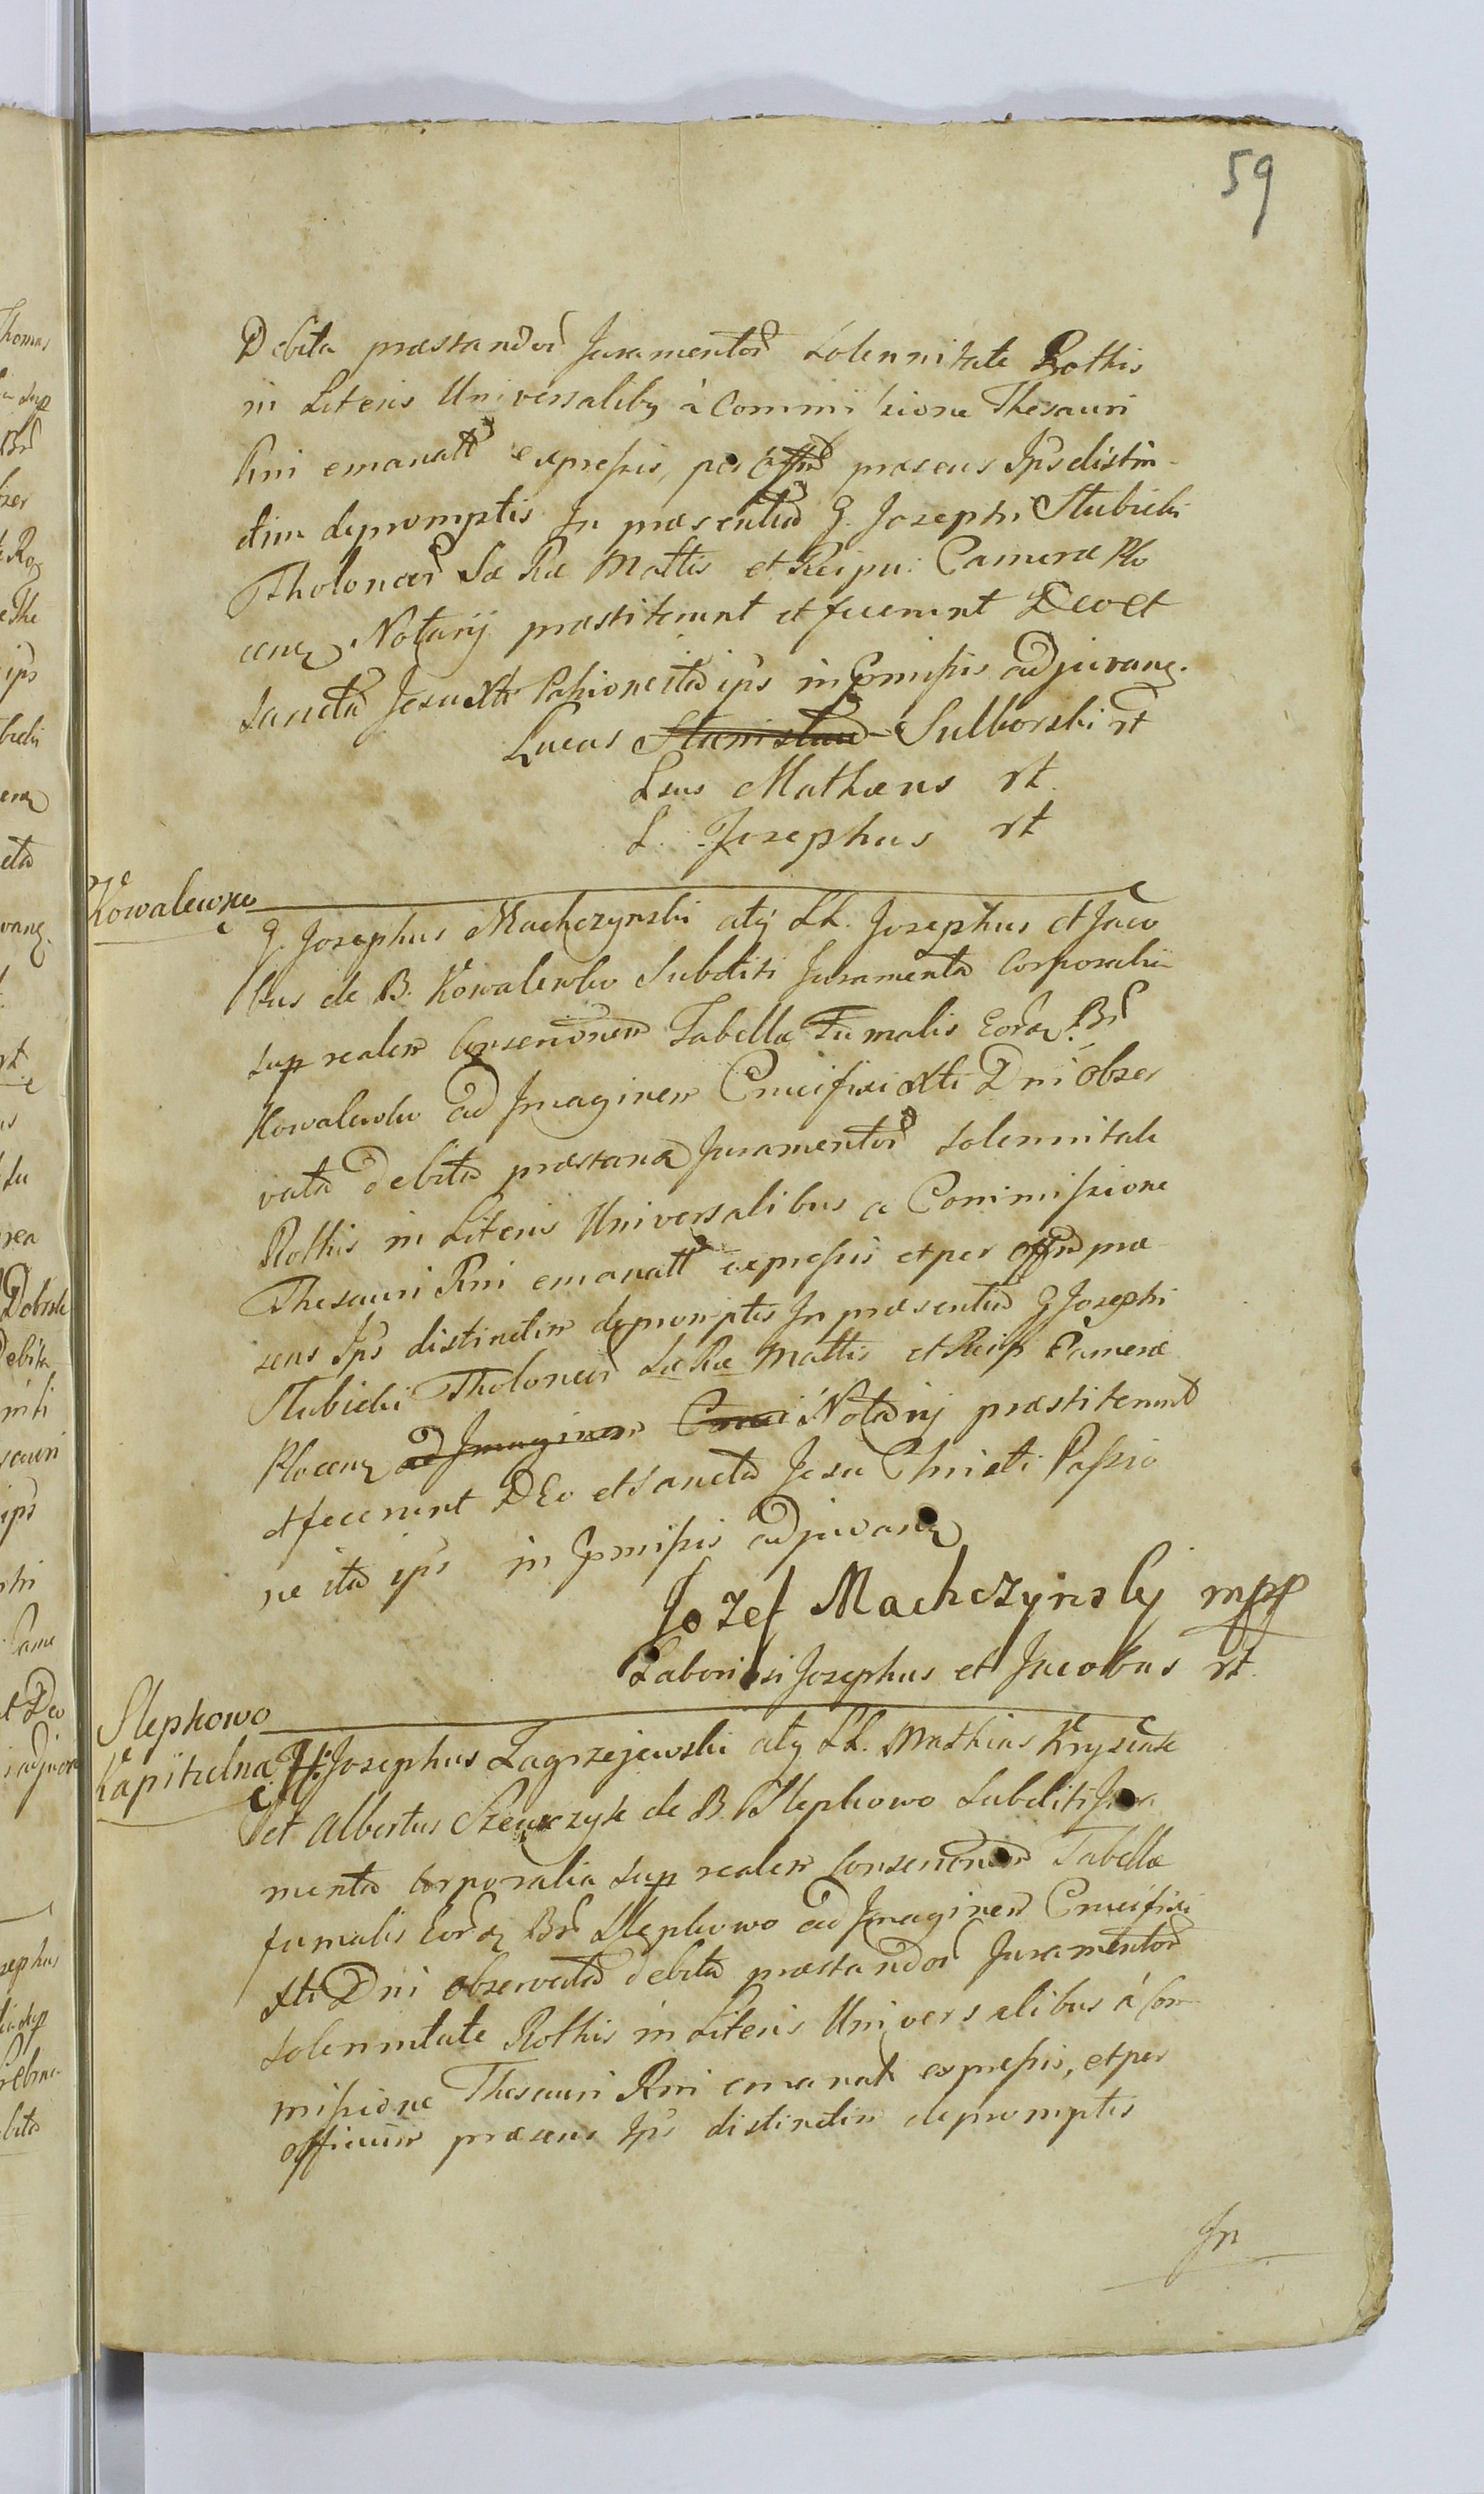 59
Debita præstandor Juramentor Solennitate Rothis
in Literis Universalibq à Commissione Thesauri
Rni emanatt expressis, per offm præsens Ips distin-
ctim depromptis In præsentia G. Josephi Stubicki
Tholonear Sæ Ræ Mattis et Reipu: Cameræ Plo
cenq Notarij præstiterunt et fecerunt Deo et
Sancta Jesu Xti Passione ita ips in Præmissis adjuvanq.
Lucas Stanislaus Sulborski rt
Lsus Mathæus rt.
L. Josephus rt
Kowalewko
G. Josephus Machczynski atq LL. Josephus et Jaco
bus de B. Kowalewko Subditi Juramenta Corporalia
sup realem Conscriõnem Tabellæ Fumalis Eorq Br
Kowalewko ad Imaginem Crucifixi Xti Dni obser
vata debita præstanq Juramentor Solennitate
Rothis in Literis Universalibus a Commissione
Thesauri Rni emanatt expressis et per offm præ
sens Ips distinctim depromptis In præsentia G Josephi
Stubicki Tholonear Sæ Ræ Mattis et Reip Cameræ
Plocenq ad Imaginem Cruci Notarij præstiterunt
et fecerunt DEo et Sancta Jesu Christi Passio
ne ita ips in Præmissis adjuvanq
Jozef Machczynsky mpp
Laboriosi Josephus et Jacobus rt.
Slepkowo
Kapitulna
G. Josephus Zagrzejewski atq LL. Mathias Krysiak
et Albertus Szewczyk de B Slepkowo Subditi Jura
menta Corporalia sup realem Conscriõnem Tabellæ
fumalis Eorq Br Slepkowo ad Imaginem Crucifixi
Xti Dni observata debita præstandor Juramentor
Solennitate Rothis in Literis Universalibus à Com
missione Thesauri Rni emanatt expressis, et per
officium præsens Ips distinctim depromptis
In